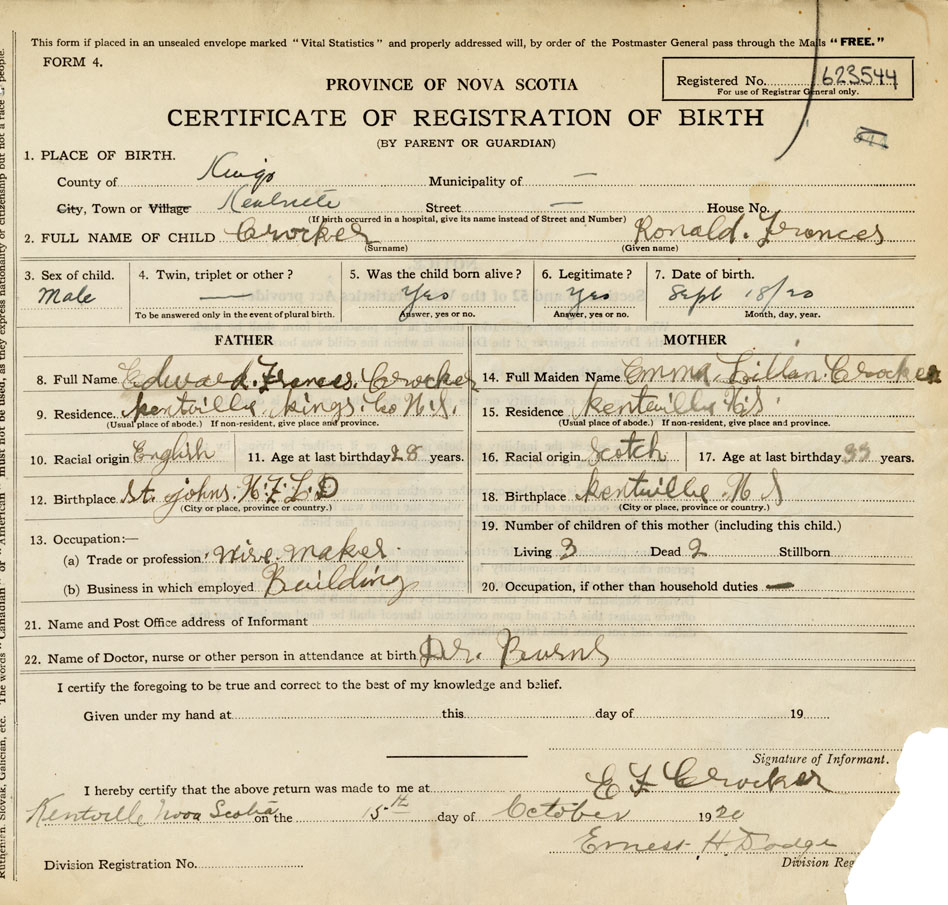 This form if placed in an unsealed envelope marked "Vital Statistics" and properly addressed will, by order of the Postmaster General pass through the Mails "FREE."
FORM 4.
Registered No. 623544
For use of Registrar General only.
PROVINCE OF NOVA SCOTIA
CERTIFICATE OF REGISTRATION OF BIRTH
(BY PARENT OR GUARDIAN)
1. PLACE OF BIRTH.
County of Kings Municipality of —
City, Town or Village Street — House No.
(If birth occurred in a hospital, give its name instead of Street and Number)
2. FULL NAME OF CHILD Crocker Ronald. Frances
(Surname) (Given name)
3. Sex of child. 4. Twin, triplet or other? 5. Was the child born alive? 6. Legitimate? 7. Date of birth.
Male — Yes Yes Sept 18/20
To be answered only in the event of plural birth. Answer, yes or no. Answer, yes or no. Month, day, year.
FATHER MOTHER
8. Full Name Edward. Frances. Crocker 14. Full Maiden Name Emma. Lillan. Crocker
9. Residence. Kentville. Kings. Co N.S. 15. Residence Kentville N.S
(Usual place of abode.) If non-resident, give place and province. (Usual place of abode.) If non-resident, give place and province.
10. Racial origin English 11. Age at last birthday 28 years. 16. Racial origin Scotch 17. Age at last birthday 33 years.
12. Birthplace St. Johns. N.F.L.D 18. Birthplace Kentville. N S
(City or place, province or country.) (City or place, province or country.)
13. Occupation:— 19. Number of children of this mother (including this child.)
(a) Trade or profession Wire. maker Living 3 Dead 2 Stillborn
(b) Business in which employed Building 20. Occupation, if other than household duties —
21. Name and Post Office address of Informant
22. Name of Doctor, nurse or other person in attendance at birth Dr. Burns
I certify the foregoing to be true and correct to the best of my knowledge and belief.
Given under my hand at this day of 19
Signature of Informant.
E F Crocker
I hereby certify that the above return was made to me at
Kentville Nova Scotia on the 15th day of October 1920
Ernest H. Dodge
Division Registration No. Division Reg
Ruthenian, Slovak, Galician, etc. The words "Canadian" or "American" must not be used, as they express nationality or citizenship but not a race of people.